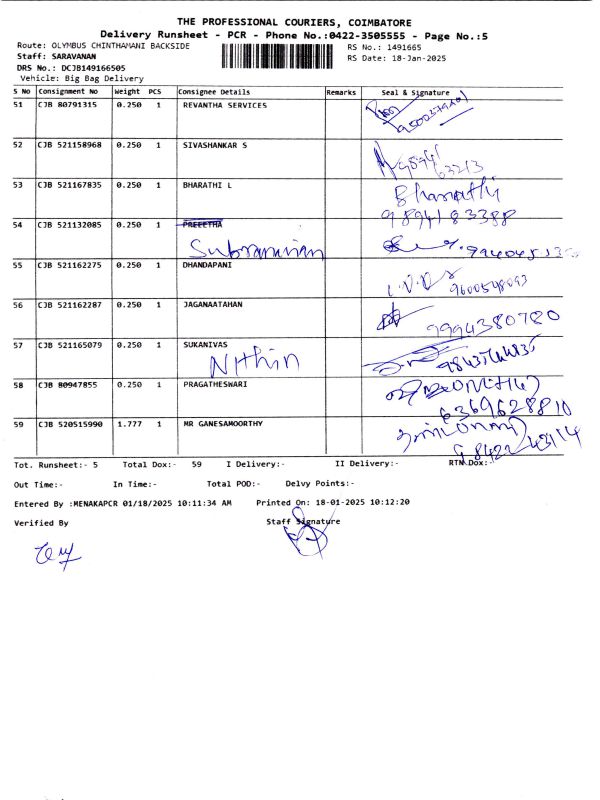 THE PROFESSIONAL COURIERS, COIMBATORE
Delivery Runsheet - PCR - Phone No.:0422-3505555 - Page No.:5
Route: OLYMBUS CHINTHAMANI BACKSIDE
RS No.: 1491665
Staff: SARAVANAN
RS Date: 18-Jan-2025
DRS No.: DCJB149166505
Vehicle: Big Bag Delivery
S No Consignment No Weight PCS Consignee Details Remarks Seal & Signature
51 CJB 80791315 0.250 1 REVANTHA SERVICES
52 CJB 521158968 0.250 1 SIVASHANKAR S
53 CJB 521167835 0.250 1 BHARATHI L Bharathi
9894183388
54 CJB 521132085 0.250 1 PREEETHA
55 CJB 521162275 0.250 1 DHANDAPANI
9600548093
56 CJB 521162287 0.250 1 JAGANAATAHAN
9994380780
57 CJB 521165079 0.250 1 SUKANIVAS
Nithin
58 CJB 80947855 0.250 1 PRAGATHESWARI
6369628810
59 CJB 520515990 1.777 1 MR GANESAMOORTHY
Tot. Runsheet:- 5 Total Dox:- 59 I Delivery:- II Delivery:- RTN Dox:-
Out Time:- In Time:- Total POD:- Delvy Points:-
Entered By :MENAKAPCR 01/18/2025 10:11:34 AM Printed On: 18-01-2025 10:12:20
Verified By Staff Signature